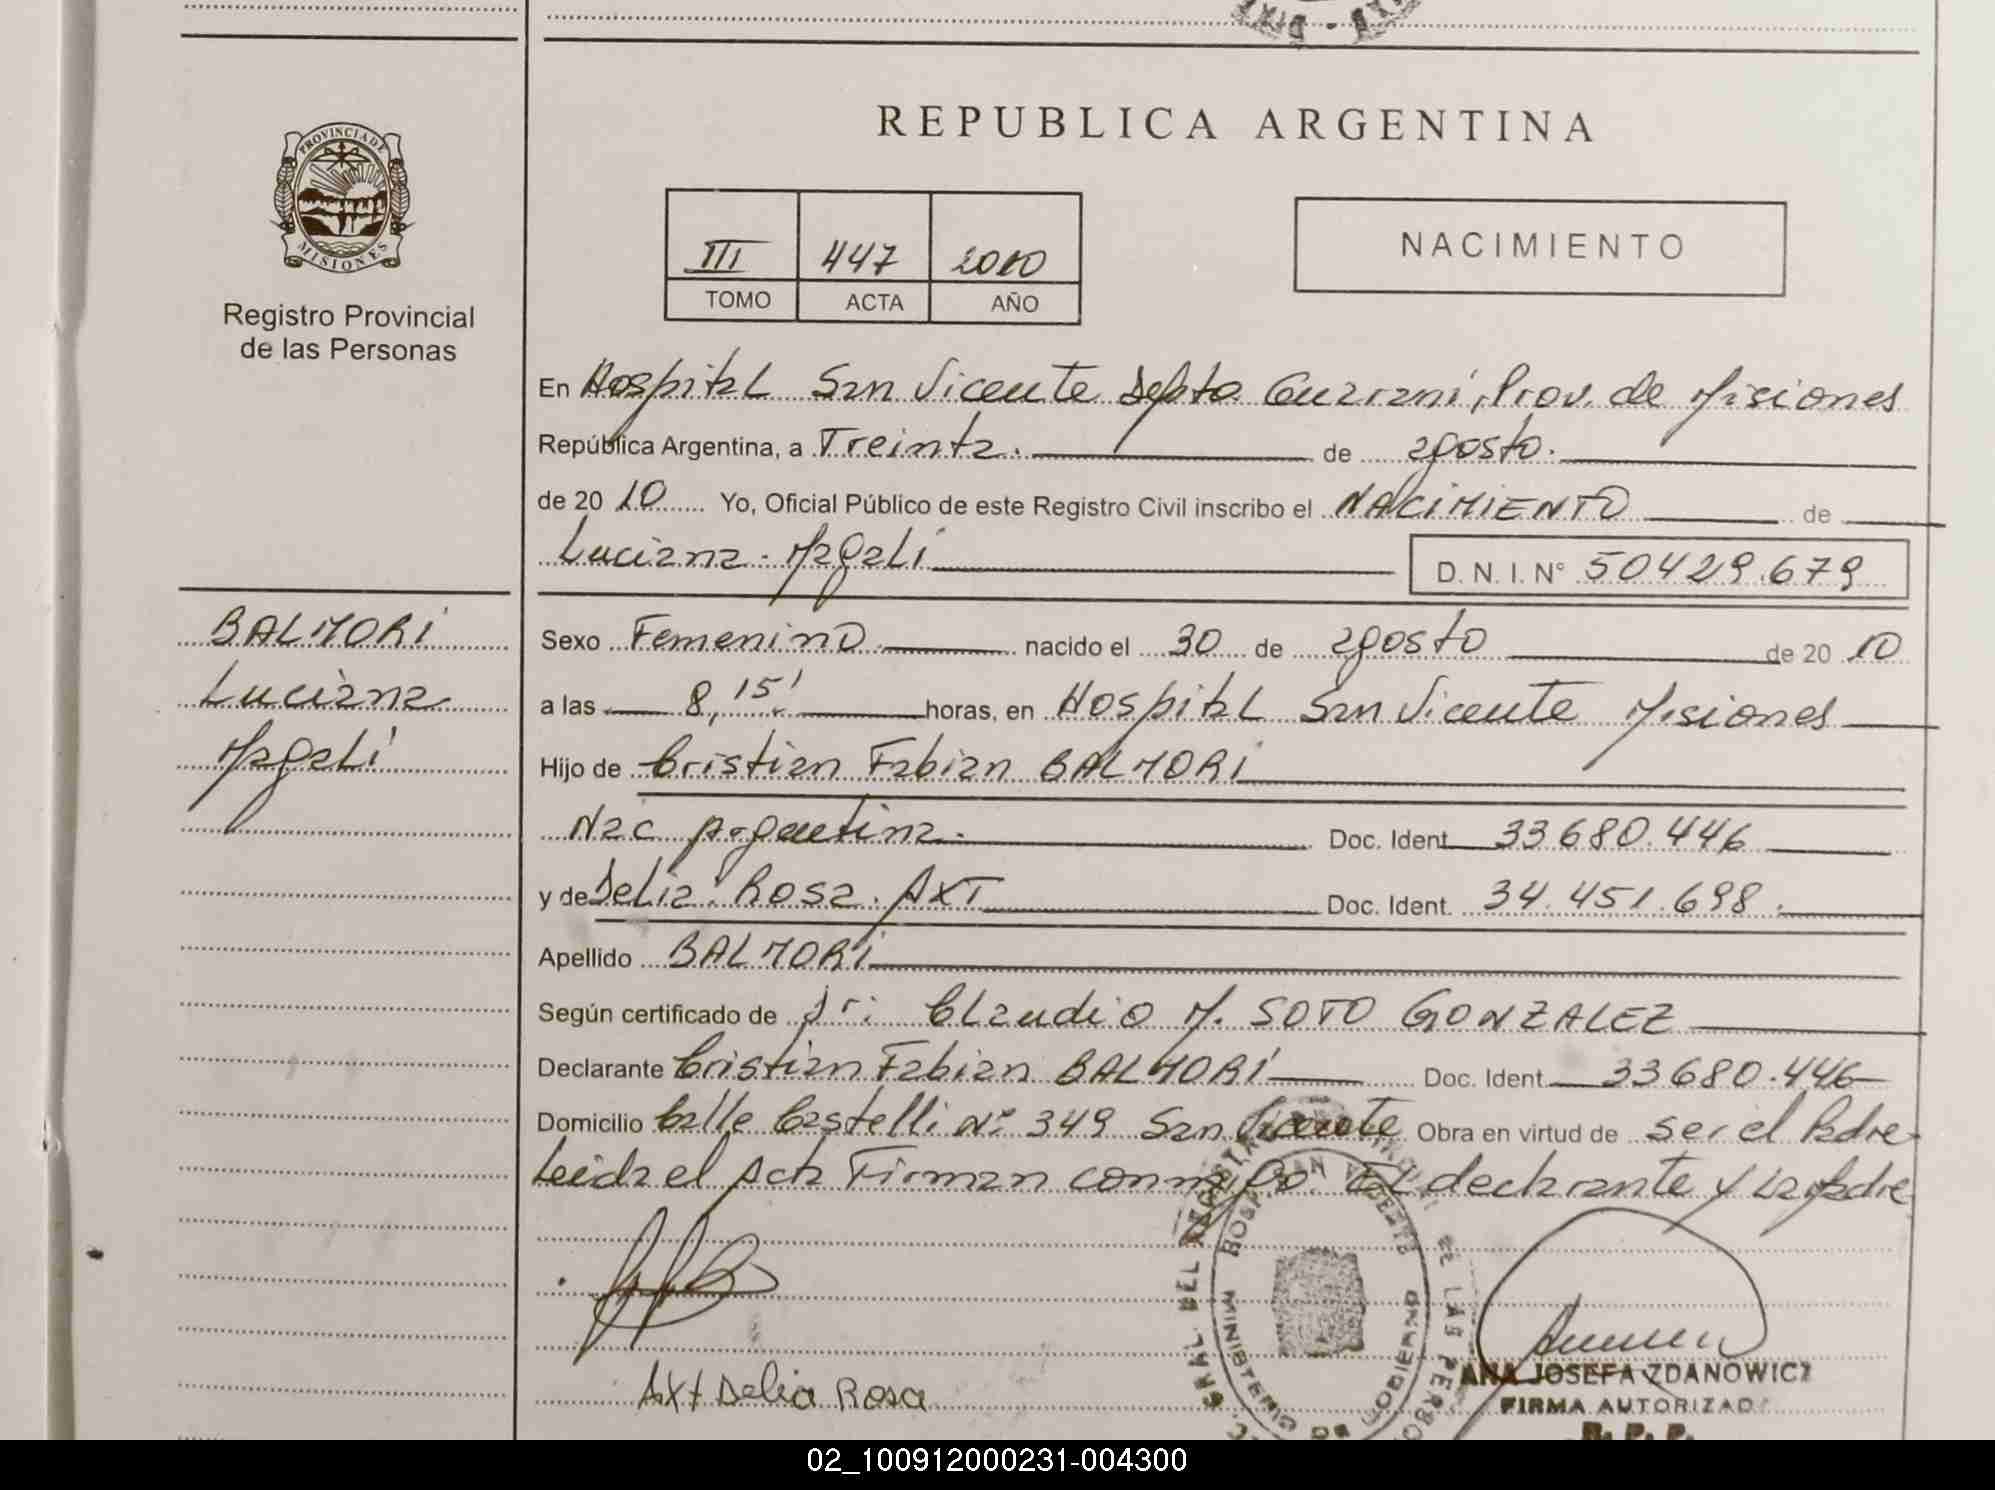 REPUBLICA ARGENTINA
PROVINCIA DE MISIONES
Registro Provincial
de las Personas
III 447 2010
TOMO ACTA AÑO
NACIMIENTO
En Hospital San Vicente Depto Guaraní, Prov. de Misiones
República Argentina, a Treinta. de agosto.
de 20 10 Yo, Oficial Público de este Registro Civil inscribo el NACIMIENTO de
Luciana Magalí D. N. I. Nº 50429.679
BALMORI
Luciana
Magalí
Sexo Femenino nacido el 30 de agosto de 20 10
a las 8,15' horas, en Hospital San Vicente Misiones
Hijo de Cristian Fabian BALMORI
Nac Argentina. Doc. Ident 33680.446
y de Delia Rosa AXT Doc. Ident. 34.451.698.
Apellido BALMORI
Según certificado de Dr: Claudio M. SOTO GONZALEZ
Declarante Cristian Fabian BALMORI Doc. Ident 33680.446
Domicilio Calle Castelli Nº 349 San Vicente Obra en virtud de ser el Padre
Leida el Acta Firman conmigo El declarante y La Madre
HOSPITAL SAN VICENTE
MINISTERIO DE GOBIERNO
GRAL. DEL REGISTRO DE LAS PERSONAS
Axt Delia Rosa
ANA JOSEFA ZDANOWICZ
FIRMA AUTORIZADA
R. P. P.
02_100912000231-004300